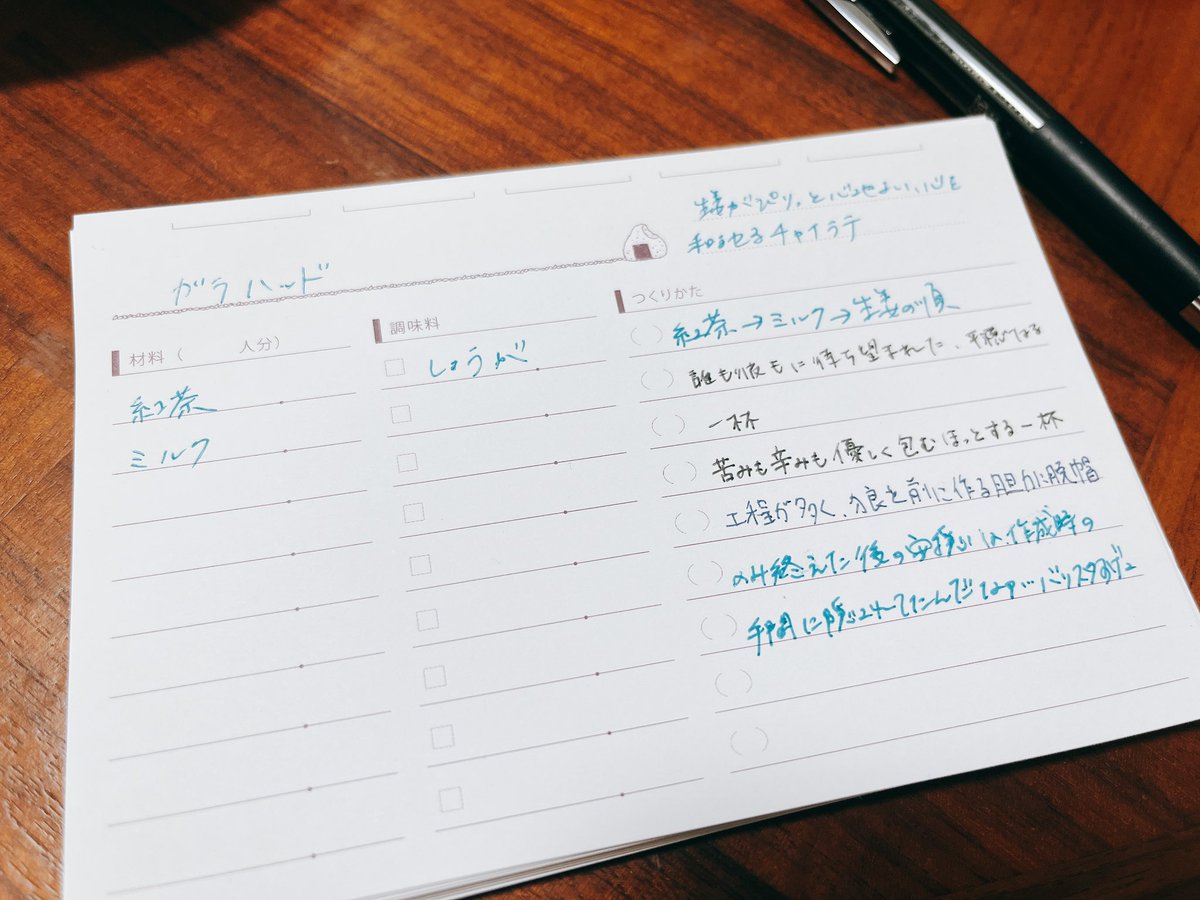 生姜がぴりっと心地よい、心を
和ませるチャイラテ
ガラハッド
材料（　　　人分）
紅茶
ミルク
調味料
しょうが
つくりかた
紅茶→ミルク→生姜の順
誰も彼もに待ち望まれた、平穏なる
一杯
苦みも辛みも優しく包むほっとする一杯
工程が多く、分良を前に作る胆力に脱帽
のみ終えた後の安穏は作成時の
手間に隠されてたんだなァ…バリスタあげ